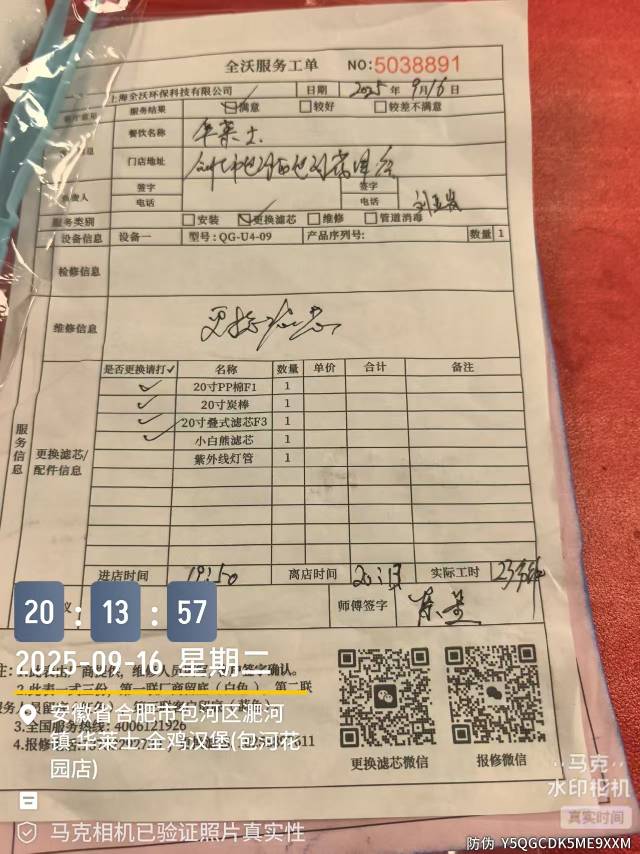 全沃服务工单 NO:5038891
上海全沃环保科技有限公司 日期 2025年9月16日
服务结果 满意 较好 较差不满意
餐饮名称 华莱士
门店地址
签字 签字
电话 电话
服务类别 安装 更换滤芯 维修 管道消毒
设备信息 设备一 型号:QG-U4-09 产品序列号: 数量 1
检修信息
维修信息 更换滤芯
是否更换请打✓ 名称 数量 单价 合计 备注
✓ 20寸PP棉F1 1
✓ 20寸炭棒 1
✓ 20寸叠式滤芯F3 1
✓ 小白熊滤芯 1
紫外线灯管 1
服务信息
更换滤芯/配件信息
进店时间 19:50 离店时间 实际工时 23分钟
师傅签字
20:13:57
2025-09-16 星期二
2.此表一式三份,第一联厂商留底(白色),第二联
3.全国服务热线:4006121920
安徽省合肥市包河区淝河
镇·华莱士·全鸡汉堡(包河花
园店)
更换滤芯微信 报修微信
马克相机已验证照片真实性
马克
水印相机
真实时间
防伪 Y5QGCDK5ME9XXM